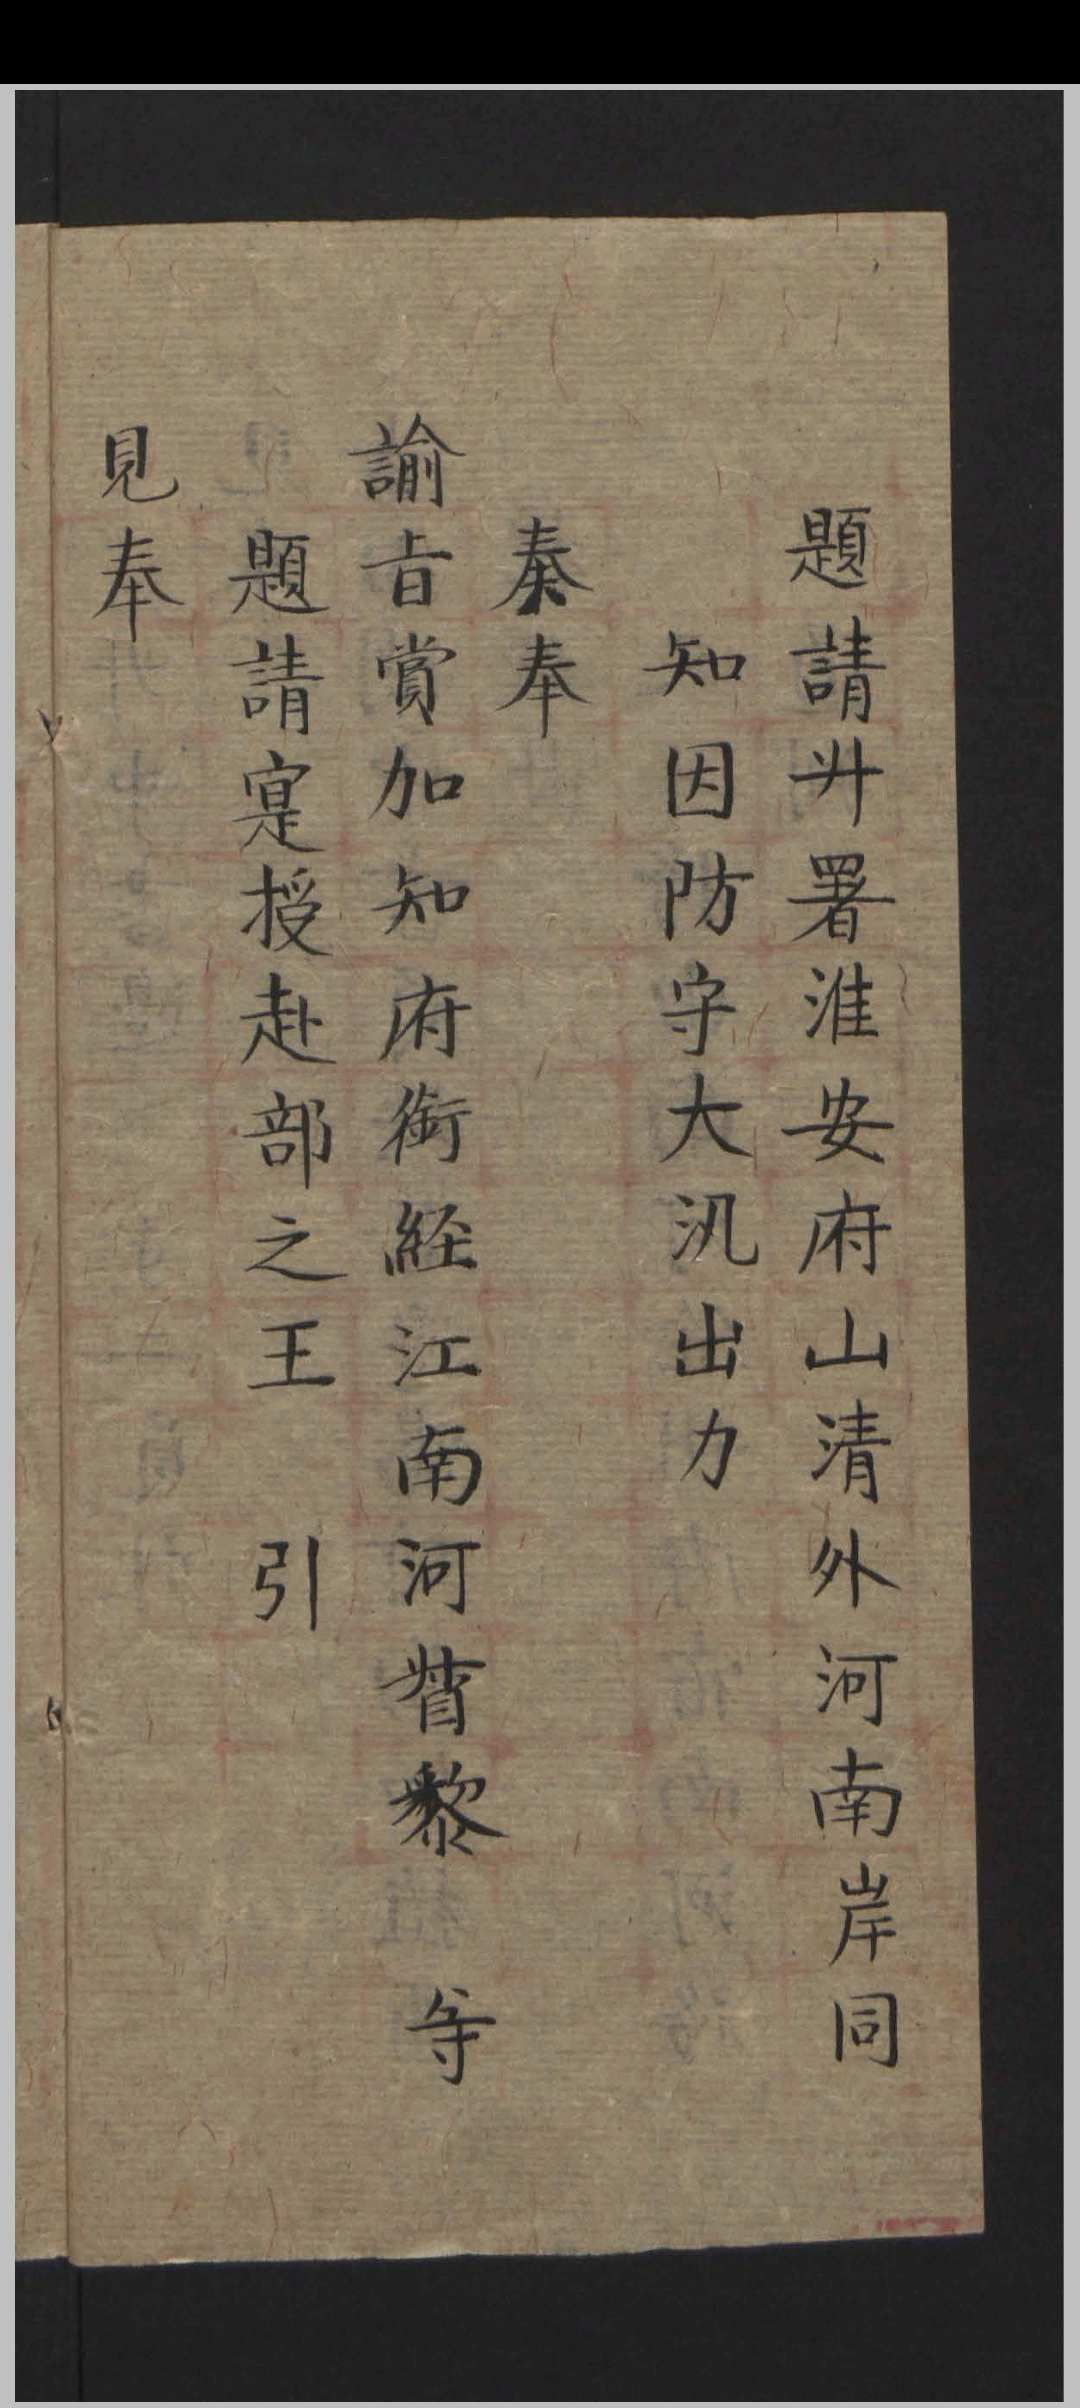 題請升署淮安府山清外河南岸同
知因防守大汛出力
奏奉
諭旨賞加知府銜経江南河督黎 等
題請寔授赴部之王 引
見奉